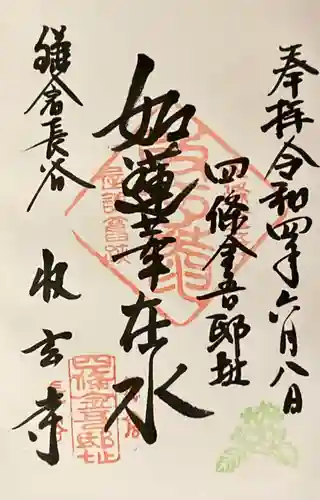 奉拝令和四年六月八日
四條金吾邸址
如蓮華在水
鎌倉長谷
收玄寺
四條金吾邸址